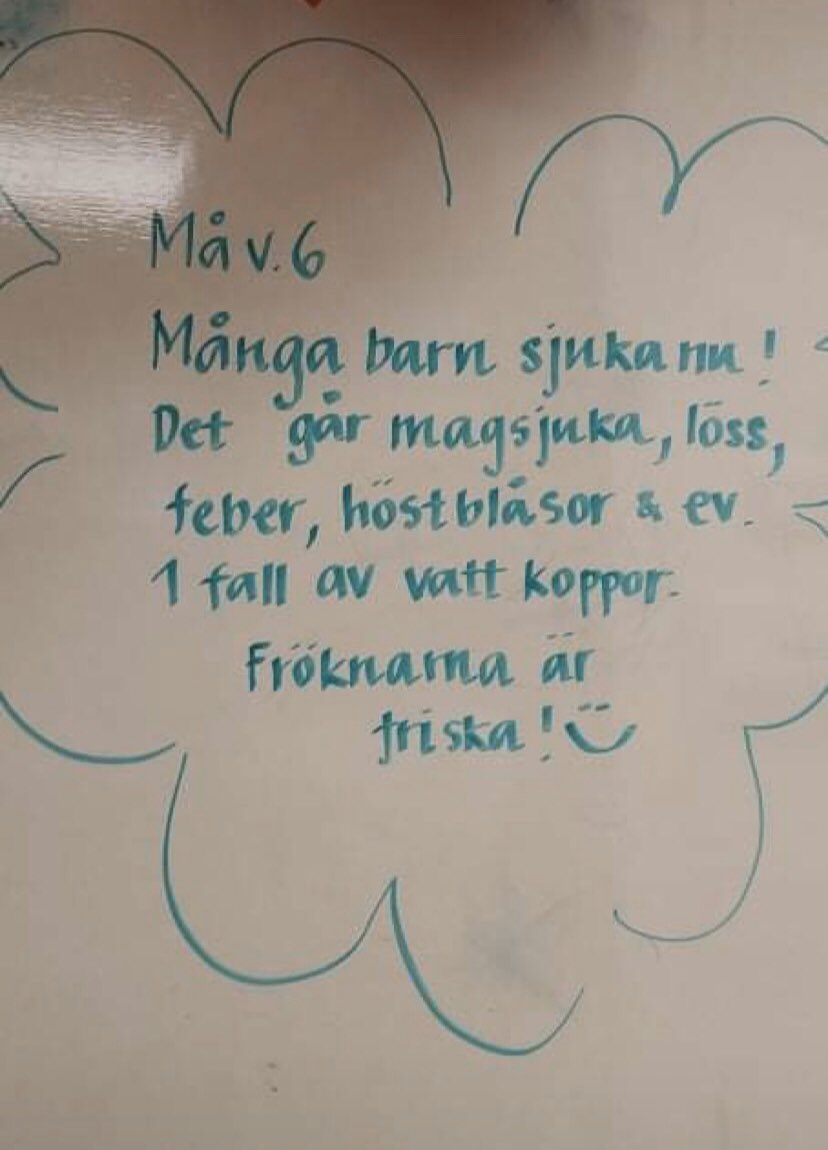 Må v. 6
Många barn sjuka nu!
Det går magsjuka, löss,
feber, höstblåsor & ev.
1 fall av vatt koppor.
Fröknarna är
friska!